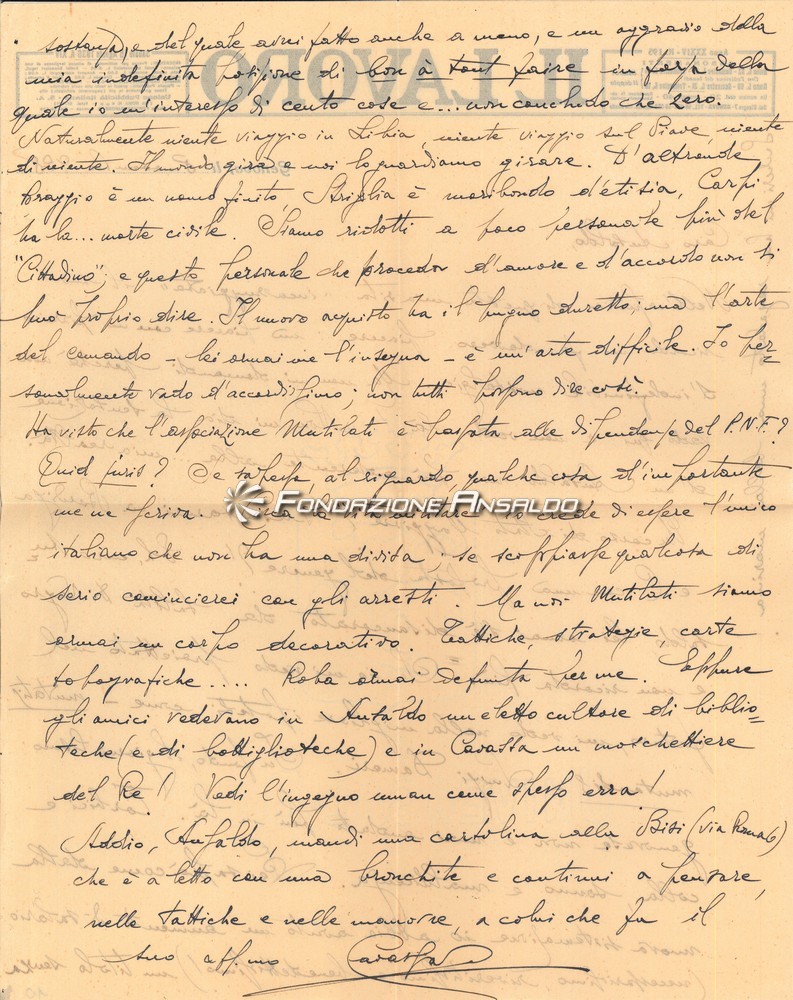 sostanza, e del quale avrei fatto anche a meno, e un aggravio della
mia indefinita posizione di bon à tout faire in forza della
quale io m'interesso di cento cose e... non concludo che zero.
Naturalmente niente viaggio in Libia, niente viaggio sul Piave, niente
di niente. Il mondo gira e noi lo guardiamo girare. D'altronde
Poraggio è un uomo finito, Striglia è moribondo d'etisia, Carpi
ha la... morte civile. Siamo ridotti a poco personale più del
"Cittadino"; e questo personale che proceda d'amore e d'accordo non si
può proprio dire. Il nuovo acquisto ha il pugno duretto; ma l'arte
del comando – lei ormai me l'insegna – è un'arte difficile. Io per=
sonalmente vado d'accordissimo; non tutti possono dire così.
Ha visto che l'associazione Mutilati è passata alle dipendenze del P.N.F.?
Quid juris? Se sapesse, al riguardo, qualche cosa d'importante
me ne scriva. la vita militare io credo di essere l'unico
italiano che non ha una divisa; se scoppiasse qualcosa di
serio comincierei con gli arresti. Ma noi Mutilati siamo
ormai un corpo decorativo. Tattiche, strategie, carte
topografiche.... Roba ormai defunta per me. Eppure
gli amici vedevano in Ansaldo un eletto cultore di biblio=
teche (e di bottiglioteche) e in Cavassa un moschettiere
del Re! Vedi l'ingegno uman come spesso erra!
Addio, Ansaldo, mandi una cartolina alla Bisi (Via Roma 6)
che è a letto con una bronchite e continui a pensare,
nelle tattiche e nelle manovre, a colui che fu il
suo aff.mo Cavassa
IL LAVORO
Fondazione Ansaldo